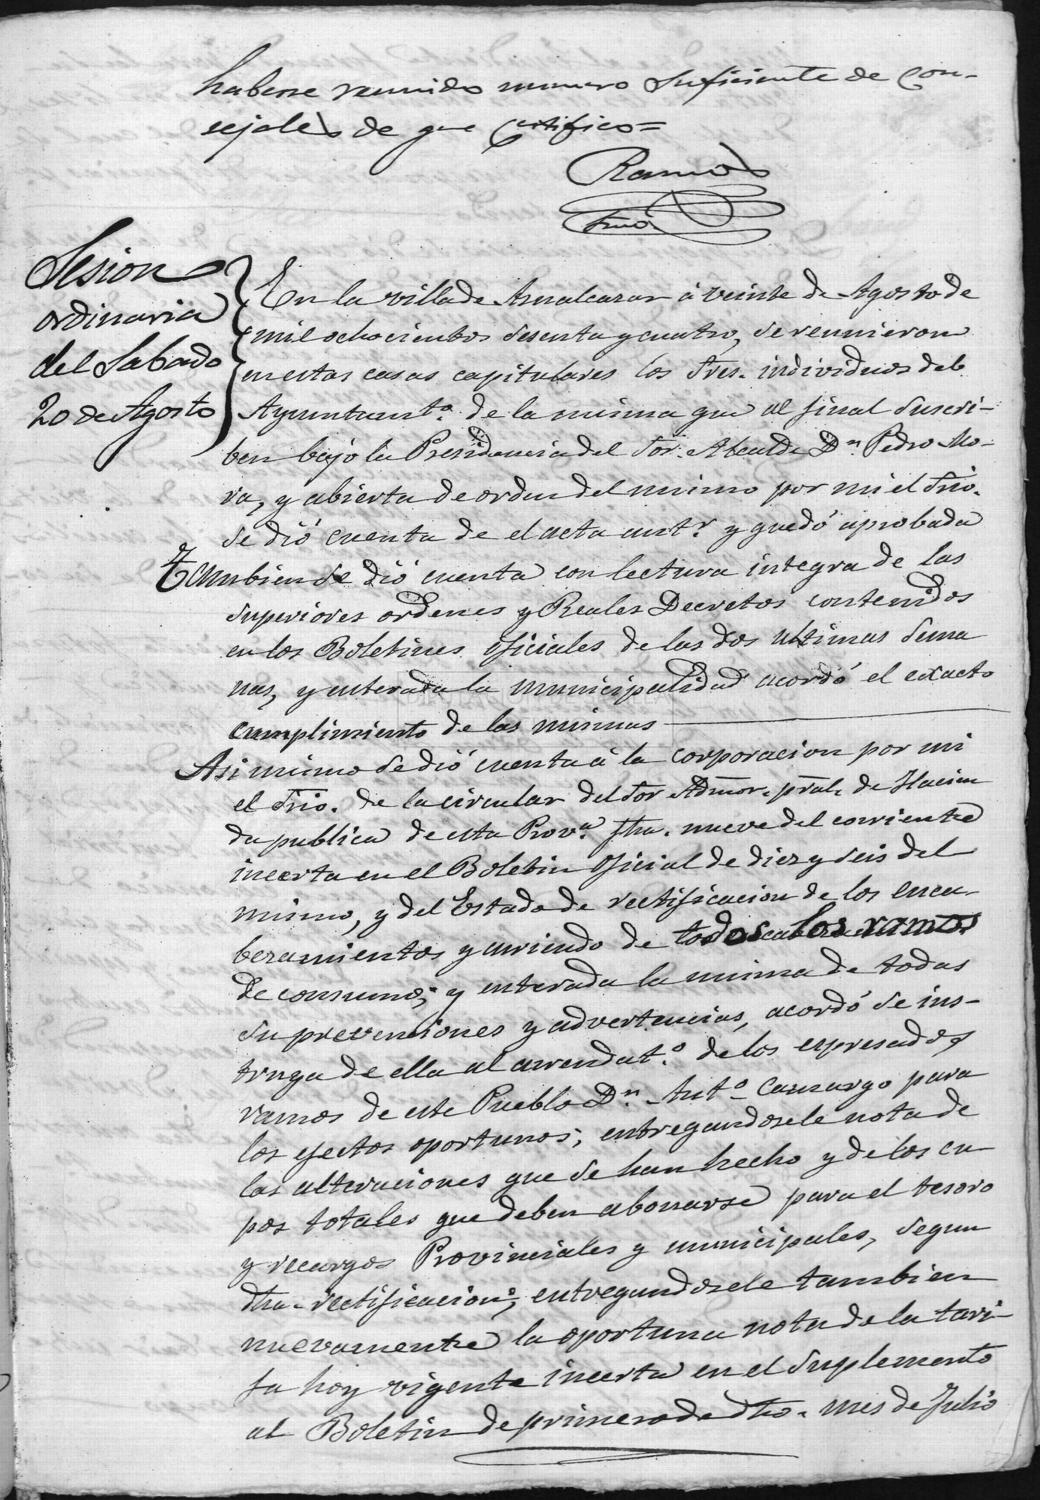 haberse reunido numero suficiente de Con-
sejales de que Certifico=
Ramos
Srio
Sesion
ordinaria
del Sabado
20 de Agosto
En la villa de Aznalcazar á veinte de Agosto de
mil ochocientos sesenta y cuatro, se reunieron
en estas casas capitulares los Sres. individuos del
Ayuntamto. de la misma que al final suscri-
ben bajo la Presidencia del Sor. Alcalde Dn. Pedro Mo-
ra, y abierta de orden del mismo por mi el Srio.
se dió cuenta de el acta antr. y quedó aprobada
Tambien se dió cuenta con lectura integra de las
superiores ordenes y Reales Decretos contenidos
en los Boletines oficiales de las dos ultimas sema
nas, y enterada la municipalidad acordó el exacto
cumplimiento de las mismas
Asi mismo se dió cuenta á la corporacion por mi
el Srio. de la circular del Sor Admor. pral. de Hacien
da publica de esta Prova. fha. nueve del corriente
incerta en el Boletin oficial de diez y seis del
mismo, y del Estado de rectificacion de los enca-
bezamientos y arriendo de todos los ramos
de consumos; y enterada la misma de todas
su prevenciones y advertencias, acordó se ins-
truya de ella al arrendato. de los espresados
ramos de este Pueblo Dn. Anto. Camargo para
los efectos oportunos; entregandosele nota de
las alteraciones que se han hecho y de los cu
pos totales que deben abonarse para el tesoro
y recargos Provinciales y municipales, segun
dha. rectificacion, entregandosele tambien
nuevamente la oportuna nota de la tari-
fa hoy vigente incerta en el Suplemento
al Boletin de primero de dho. mes de Julio